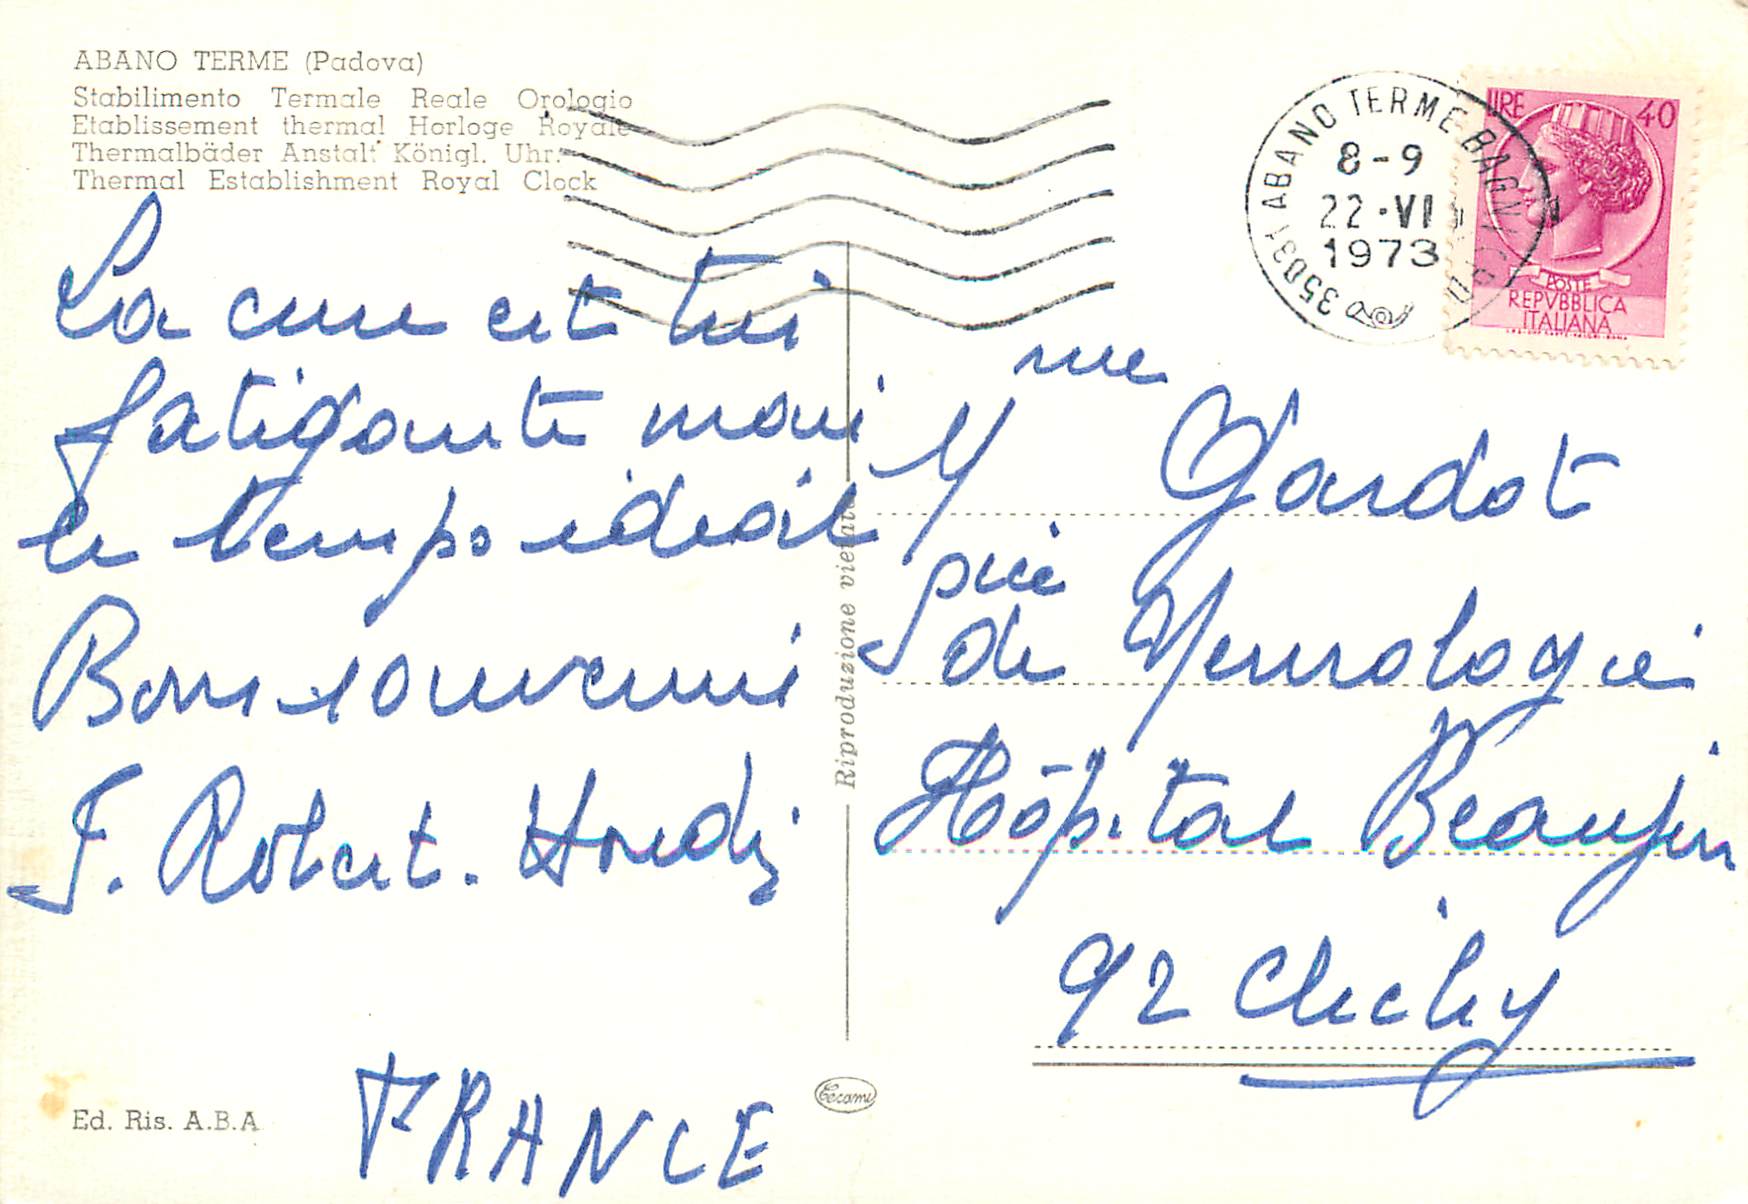 ABANO TERME (Padova)
Stabilimento Termale Reale Orologio
Etablissement thermal Horloge Royale
Thermalbäder Anstalt Königl. Uhr.
Thermal Establishment Royal Clock
La cure est très
fatigante mais
le temps idéal
Bons souvenirs
J. Robert.
FRANCE
Ed. Ris. A.B.A
Riproduzione vietata
Tecami
35031 ABANO TERME BAGNI
8-9
22·VI
1973
LIRE 40
POSTE
REPVBBLICA
ITALIANA
Mme Gardot
de Neurologie
Hôpital Beaujon
92 Clichy